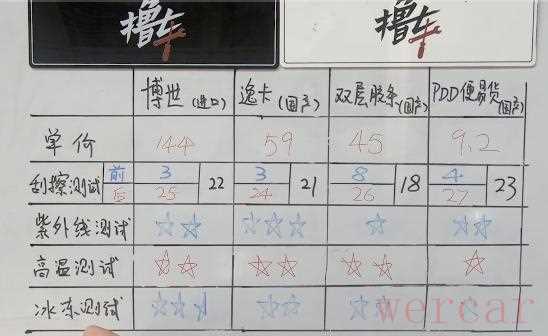 撸车 撸车
博世(进口) 逸卡(国产) 双层胶条(国产) PDD便易货(国产)
单价 144 59 45 9.2
刮擦测试 前 3 22 3 21 8 18 4 23
后 25 24 26 27
紫外线测试 ☆☆ ☆☆☆ ☆ ☆☆
高温测试 ☆☆ ☆☆ ☆☆ ☆
冰冻测试
wercar